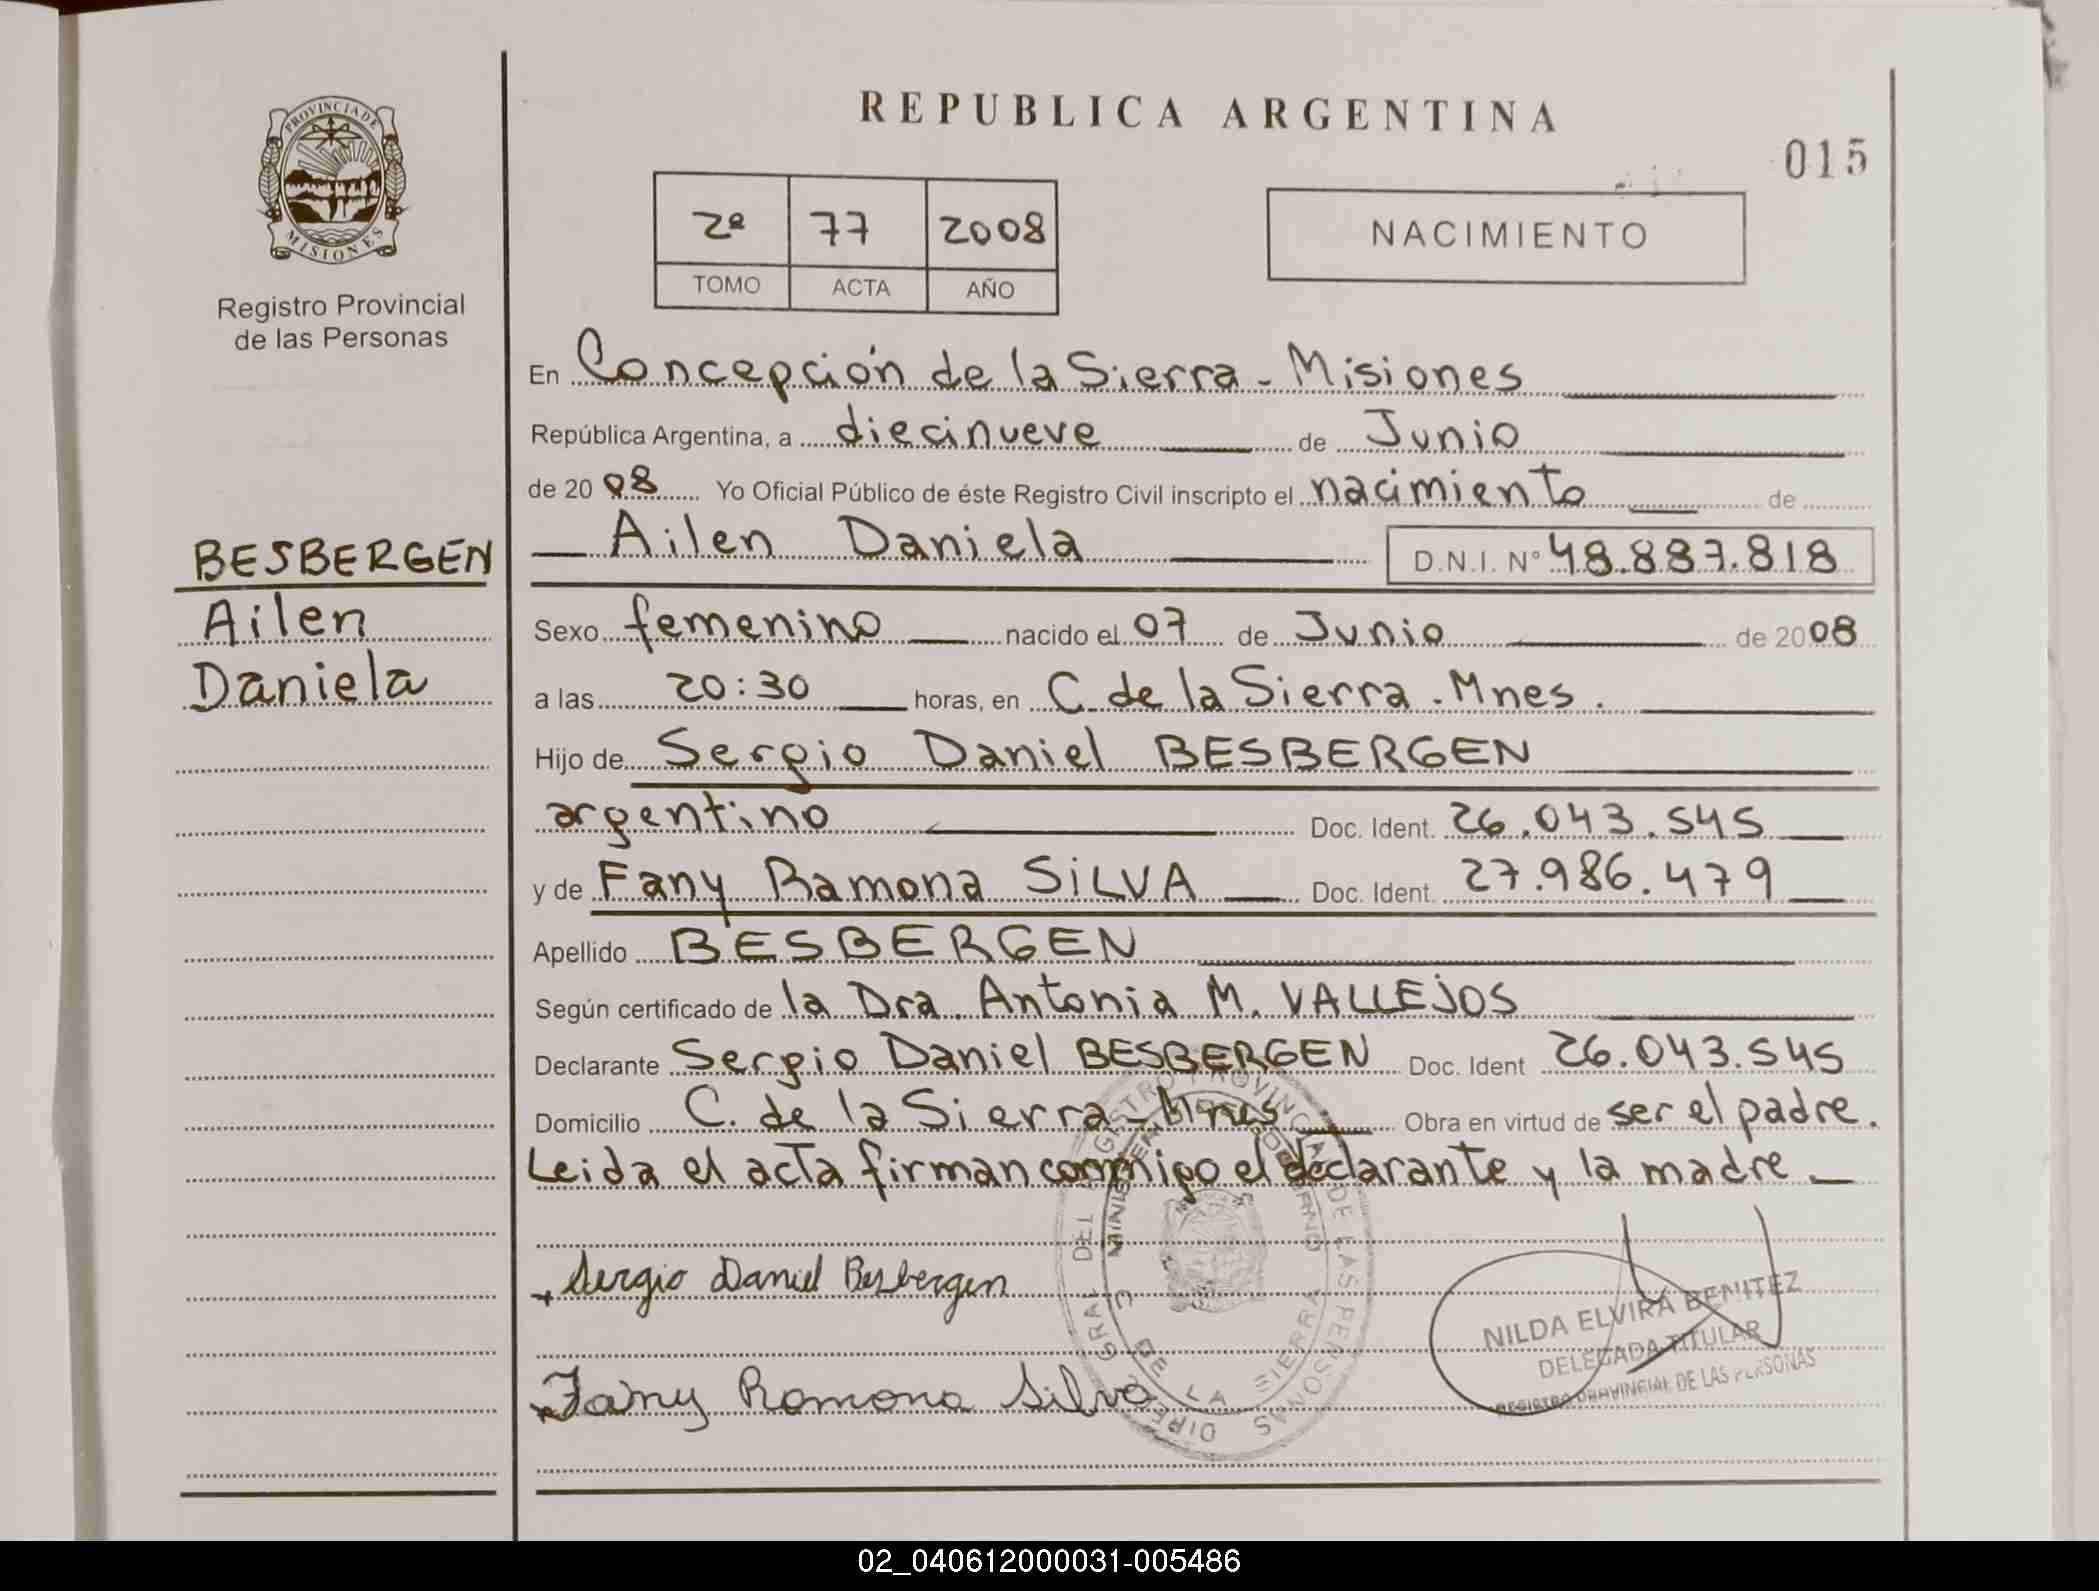 REPUBLICA ARGENTINA
015
PROVINCIA DE
MISIONES
Registro Provincial
de las Personas
2º 77 2008
TOMO ACTA AÑO
NACIMIENTO
En Concepción de la Sierra - Misiones
República Argentina, a diecinueve de Junio
de 2008 Yo Oficial Público de éste Registro Civil inscripto el nacimiento de
Ailen Daniela D.N.I. Nº 48.887.818
BESBERGEN
Ailen
Daniela
Sexo femenino nacido el 07 de Junio de 2008
a las 20:30 horas, en C. de la Sierra - Mnes.
Hijo de Sergio Daniel BESBERGEN
argentino Doc. Ident. 26.043.545
y de Fany Ramona SiLVA Doc. Ident. 27.986.479
Apellido BESBERGEN
Según certificado de la Dra. Antonia M. VALLEJOS
Declarante Sergio Daniel BESBERGEN Doc. Ident 26.043.545
Domicilio C. de la Sierra - Mnes Obra en virtud de ser el padre.
Leida el acta firman conmigo el declarante y la madre
Sergio Daniel Besbergen
Fany Ramona Silva
DIREC. GRAL DEL REGISTRO PROVINCIAL DE LAS PERSONAS
C. DE LA SIERRA
NILDA ELVIRA BENITEZ
DELEGADA TITULAR
REGISTRO PROVINCIAL DE LAS PERSONAS
02_040612000031-005486